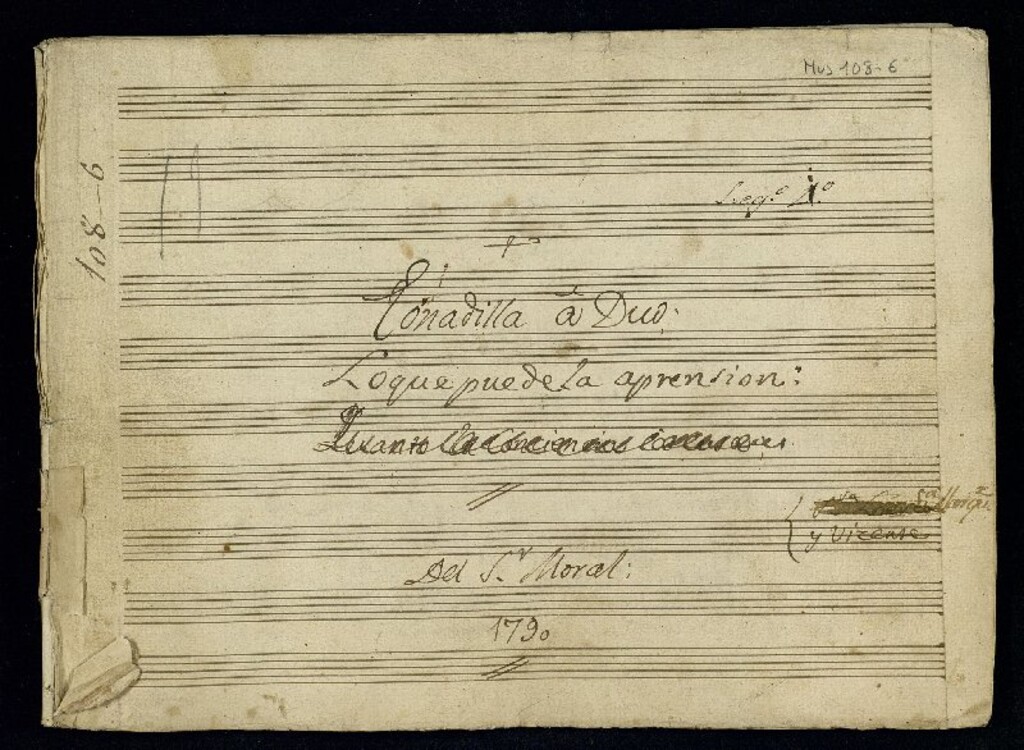 Mus 108-6
108-6
Leg.º 1.º
Tonadilla à Duo.
Loque puede la aprension:
Quanto
y Vicente
Del S.r Moral:
1790